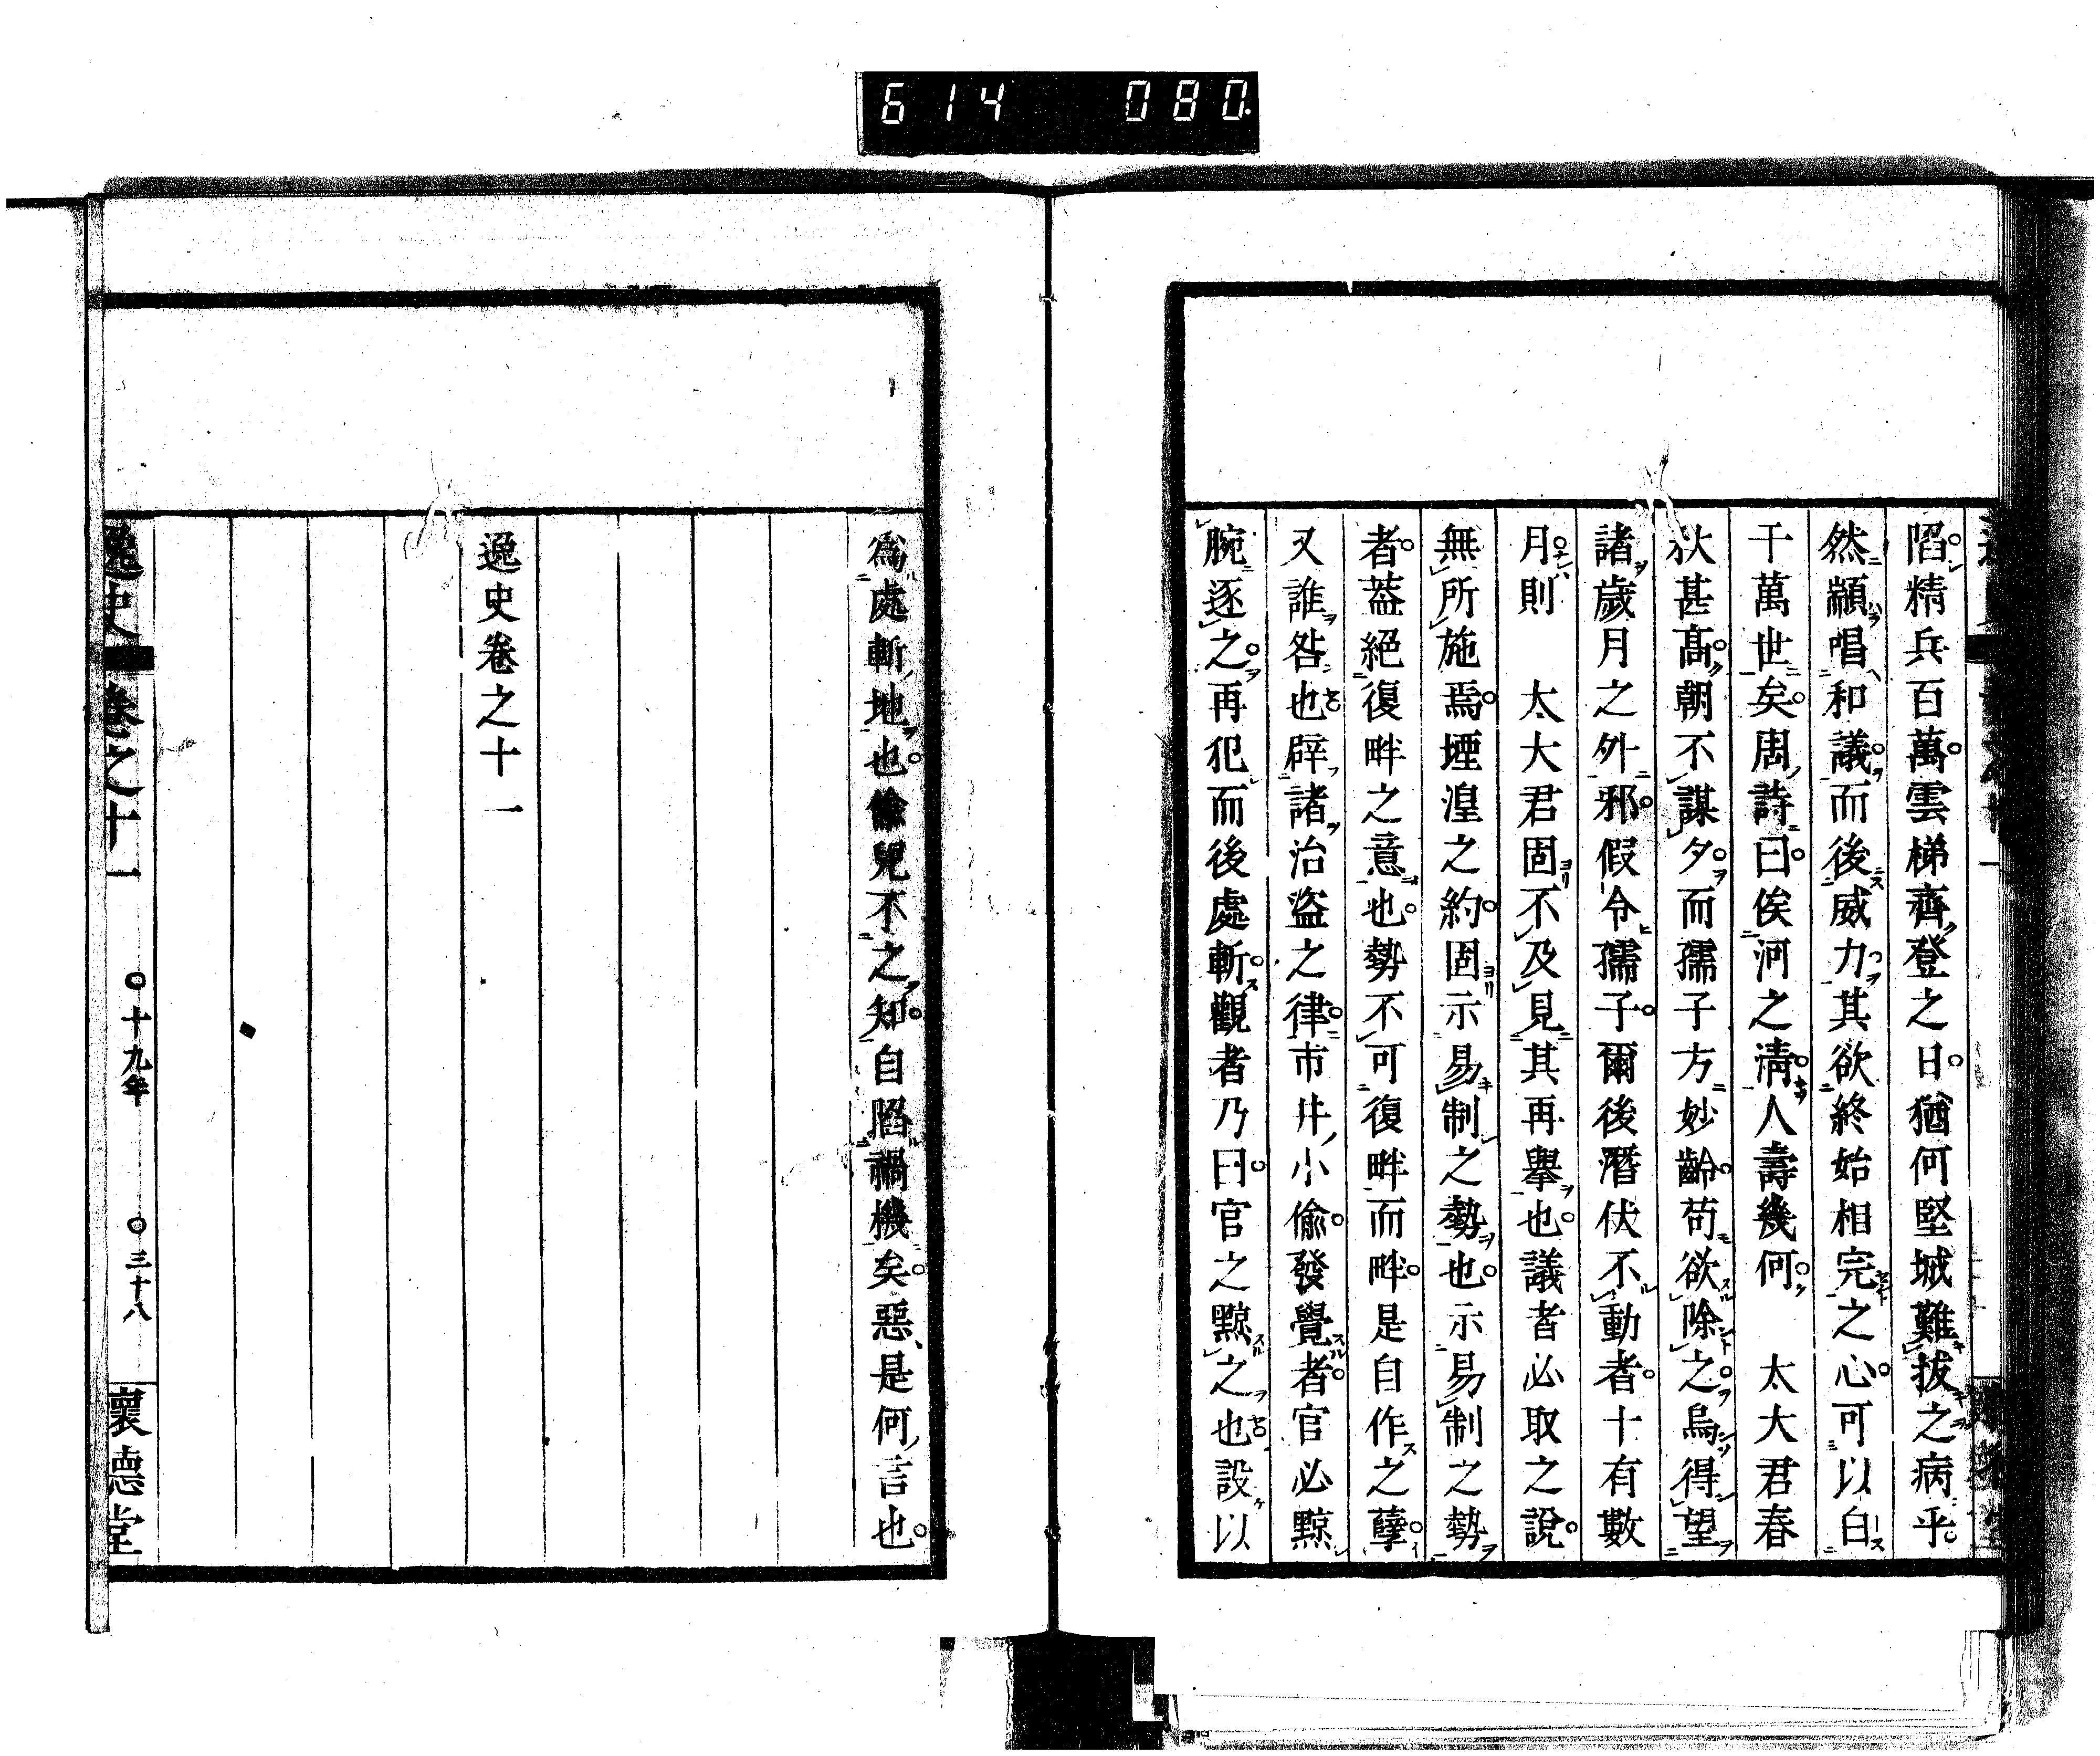 614 080
陷精兵百萬雲梯齊登之日猶何堅城難拔之病乎
然顓唱和議而後威力其欲終始相完之心可以白
于萬世矣周詩曰俟河之淸人壽幾何 太大君春
秋甚高朝不謀夕而孺子方妙齡苟欲除之烏得望
諸歲月之外邪假令孺子爾後潛伏不動者十有數
月則 太大君固不及見其再擧也議者必取之說
無所施焉堙湟之約固示易制之勢也示易制之勢
者葢絕復畔之意也勢不可復畔而畔是自作之孽
又誰咎也辟諸治盜之律市井小偷發覺者官必黥
腕逐之再犯而後處斬觀者乃曰官之黥之也設以
爲處斬地也偸兒不之知自陷禍機矣惡是何言也
逸史卷之十一
逸史 卷之十一 ○十九年 ○三十八 懷德堂